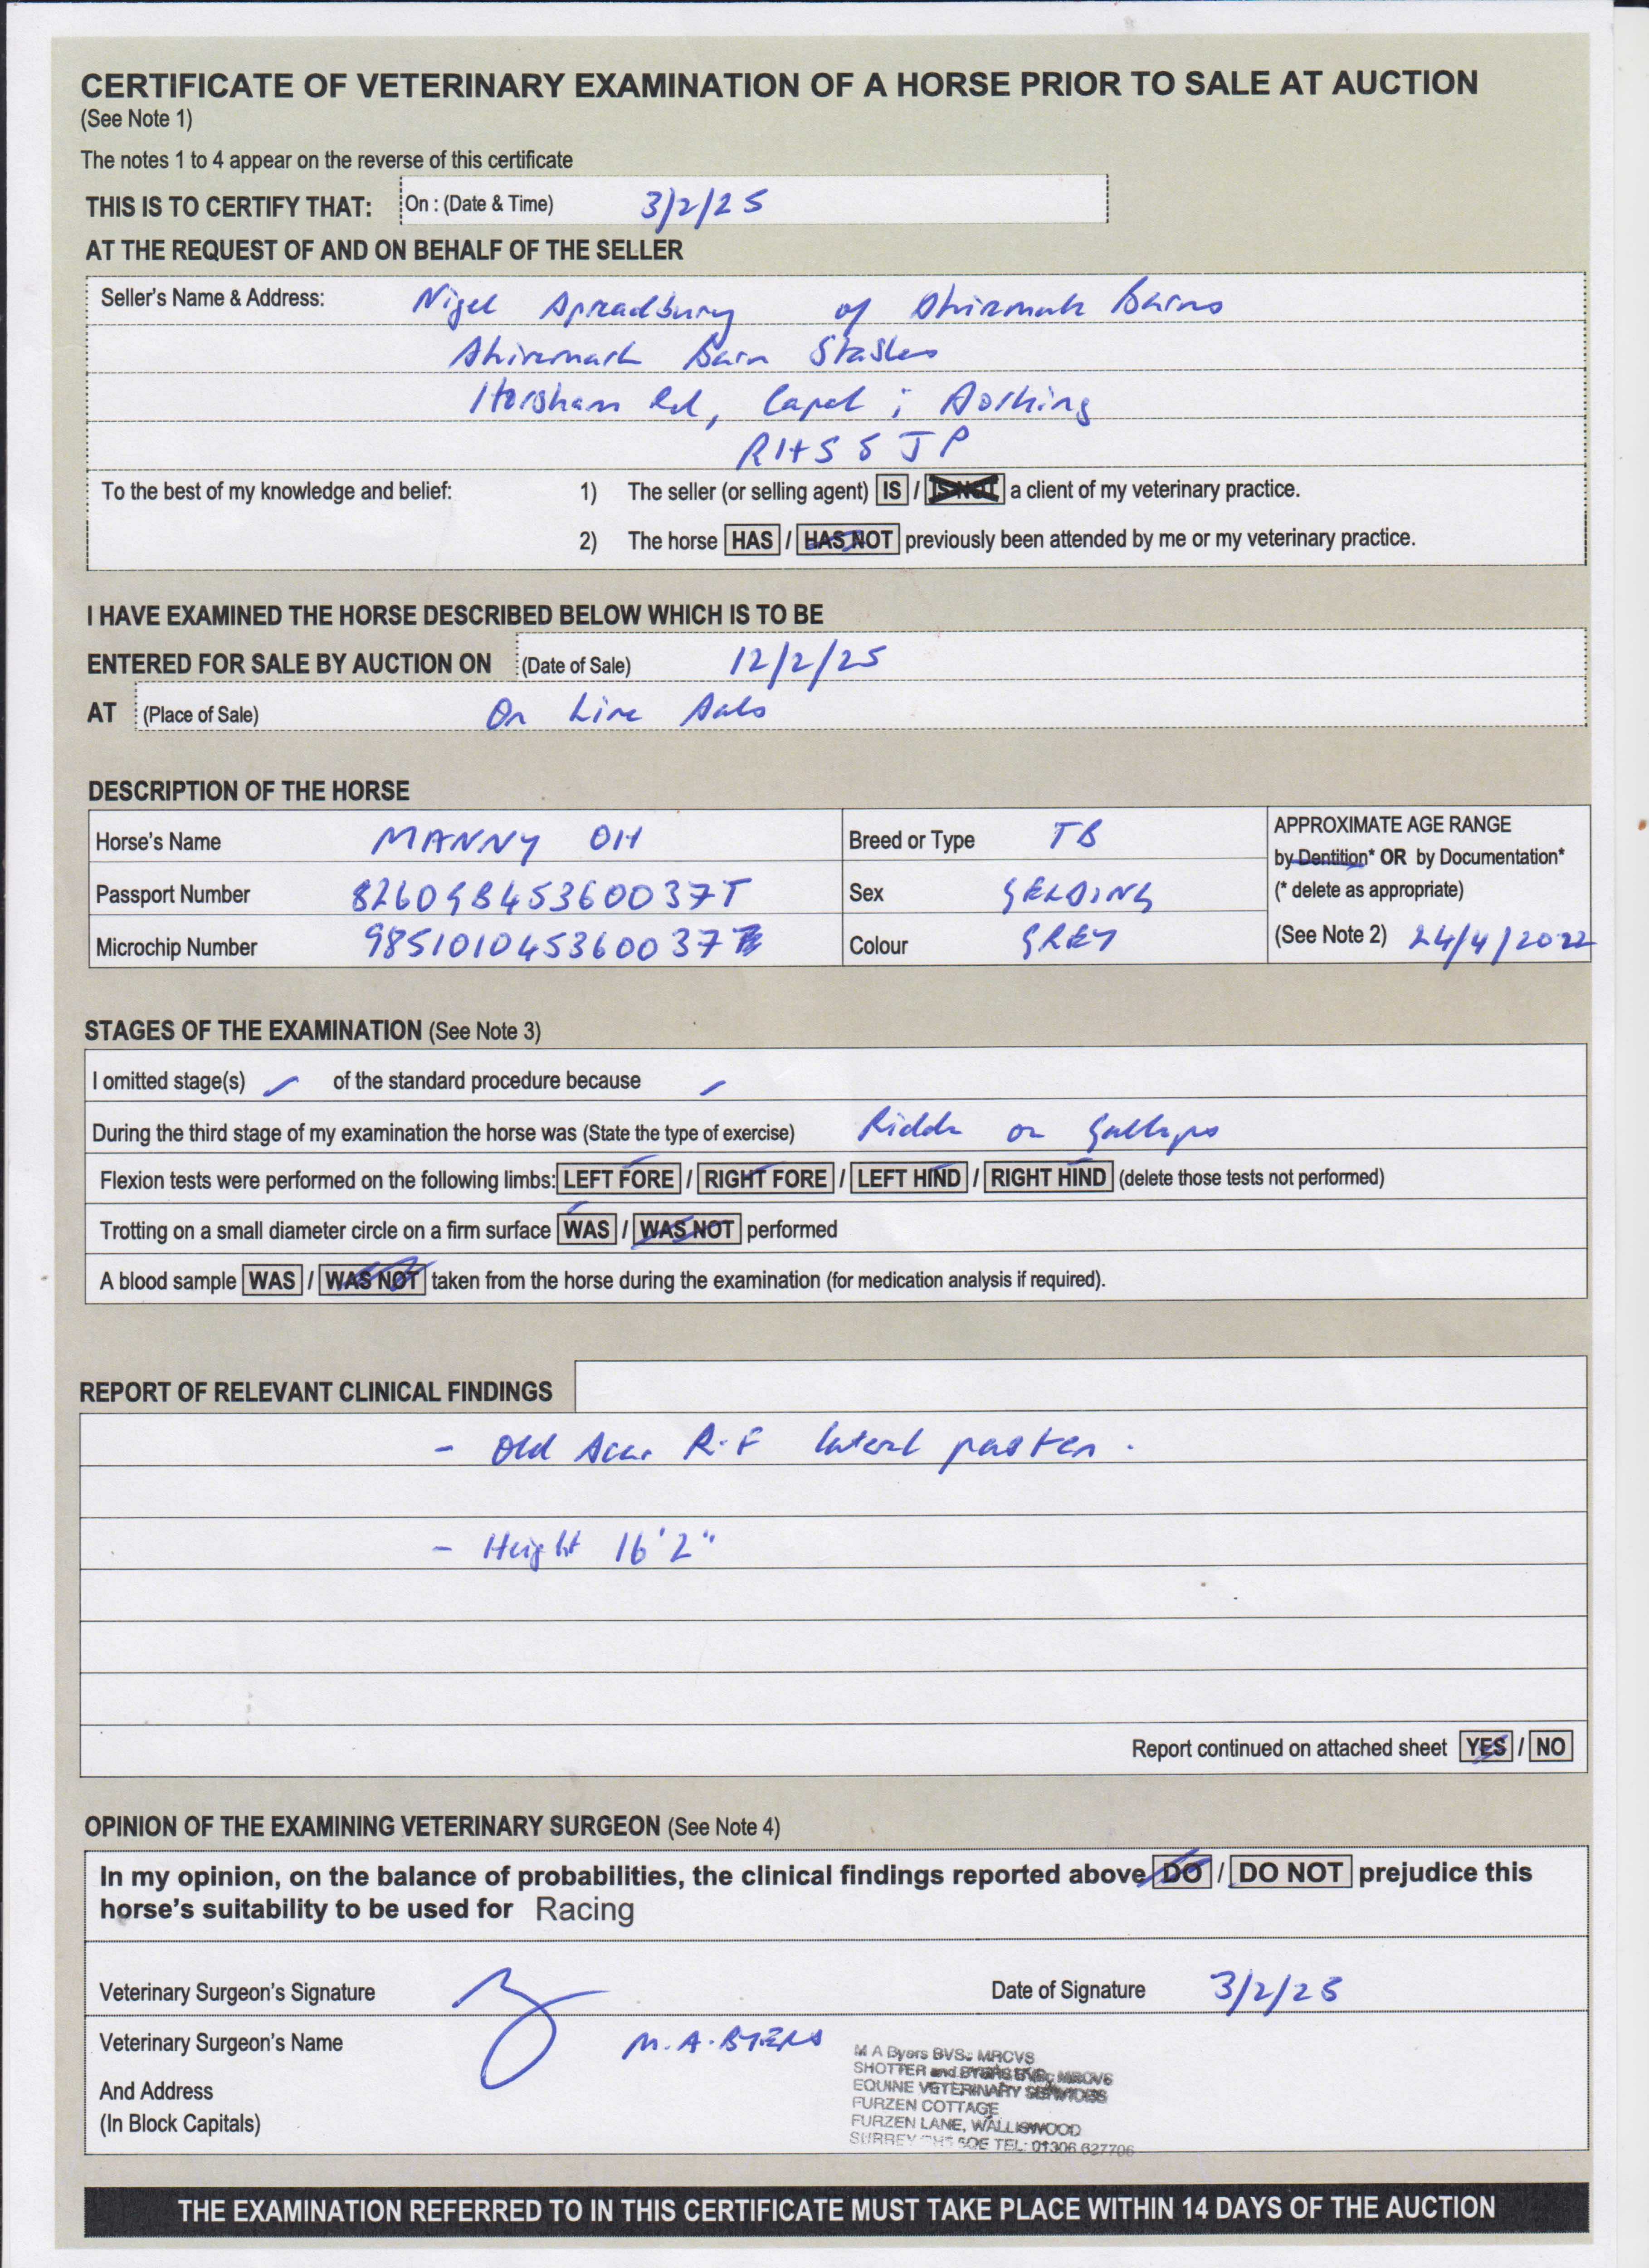 CERTIFICATE OF VETERINARY EXAMINATION OF A HORSE PRIOR TO SALE AT AUCTION
(See Note 1)
The notes 1 to 4 appear on the reverse of this certificate
THIS IS TO CERTIFY THAT: On : (Date & Time) 3/2/25
AT THE REQUEST OF AND ON BEHALF OF THE SELLER
Seller's Name & Address: Nigel Spreadbury of Shiremark Barns
Shiremark Barn Stables
Horsham Rd, Capel; Dorking
RH5 5JP
To the best of my knowledge and belief: 1) The seller (or selling agent) IS / IS NOT a client of my veterinary practice.
2) The horse HAS / HAS NOT previously been attended by me or my veterinary practice.
I HAVE EXAMINED THE HORSE DESCRIBED BELOW WHICH IS TO BE
ENTERED FOR SALE BY AUCTION ON (Date of Sale) 12/2/25
AT (Place of Sale) On Line Sales
DESCRIPTION OF THE HORSE
Horse's Name MANNY OH Breed or Type TB APPROXIMATE AGE RANGE
by Dentition* OR by Documentation*
Passport Number 82609845360037T Sex GELDING (* delete as appropriate)
Microchip Number 985101045360037 Colour GREY (See Note 2) 24/4/2022
STAGES OF THE EXAMINATION (See Note 3)
I omitted stage(s) of the standard procedure because
During the third stage of my examination the horse was (State the type of exercise) Ridden on Gallops
Flexion tests were performed on the following limbs: LEFT FORE / RIGHT FORE / LEFT HIND / RIGHT HIND (delete those tests not performed)
Trotting on a small diameter circle on a firm surface WAS / WAS NOT performed
A blood sample WAS / WAS NOT taken from the horse during the examination (for medication analysis if required).
REPORT OF RELEVANT CLINICAL FINDINGS
- Old Scar R.F lateral pastern.
- Height 16'2"
Report continued on attached sheet YES / NO
OPINION OF THE EXAMINING VETERINARY SURGEON (See Note 4)
In my opinion, on the balance of probabilities, the clinical findings reported above DO / DO NOT prejudice this
horse's suitability to be used for Racing
Veterinary Surgeon's Signature Date of Signature 3/2/25
Veterinary Surgeon's Name M.A.BYERS
And Address
(In Block Capitals)
M A Byers BVSc MRCVS
SHOTTER and BYERS BVSc MRCVS
EQUINE VETERINARY SERVICES
FURZEN COTTAGE
FURZEN LANE, WALLISWOOD
SURREY TEL: 01306 627706
THE EXAMINATION REFERRED TO IN THIS CERTIFICATE MUST TAKE PLACE WITHIN 14 DAYS OF THE AUCTION